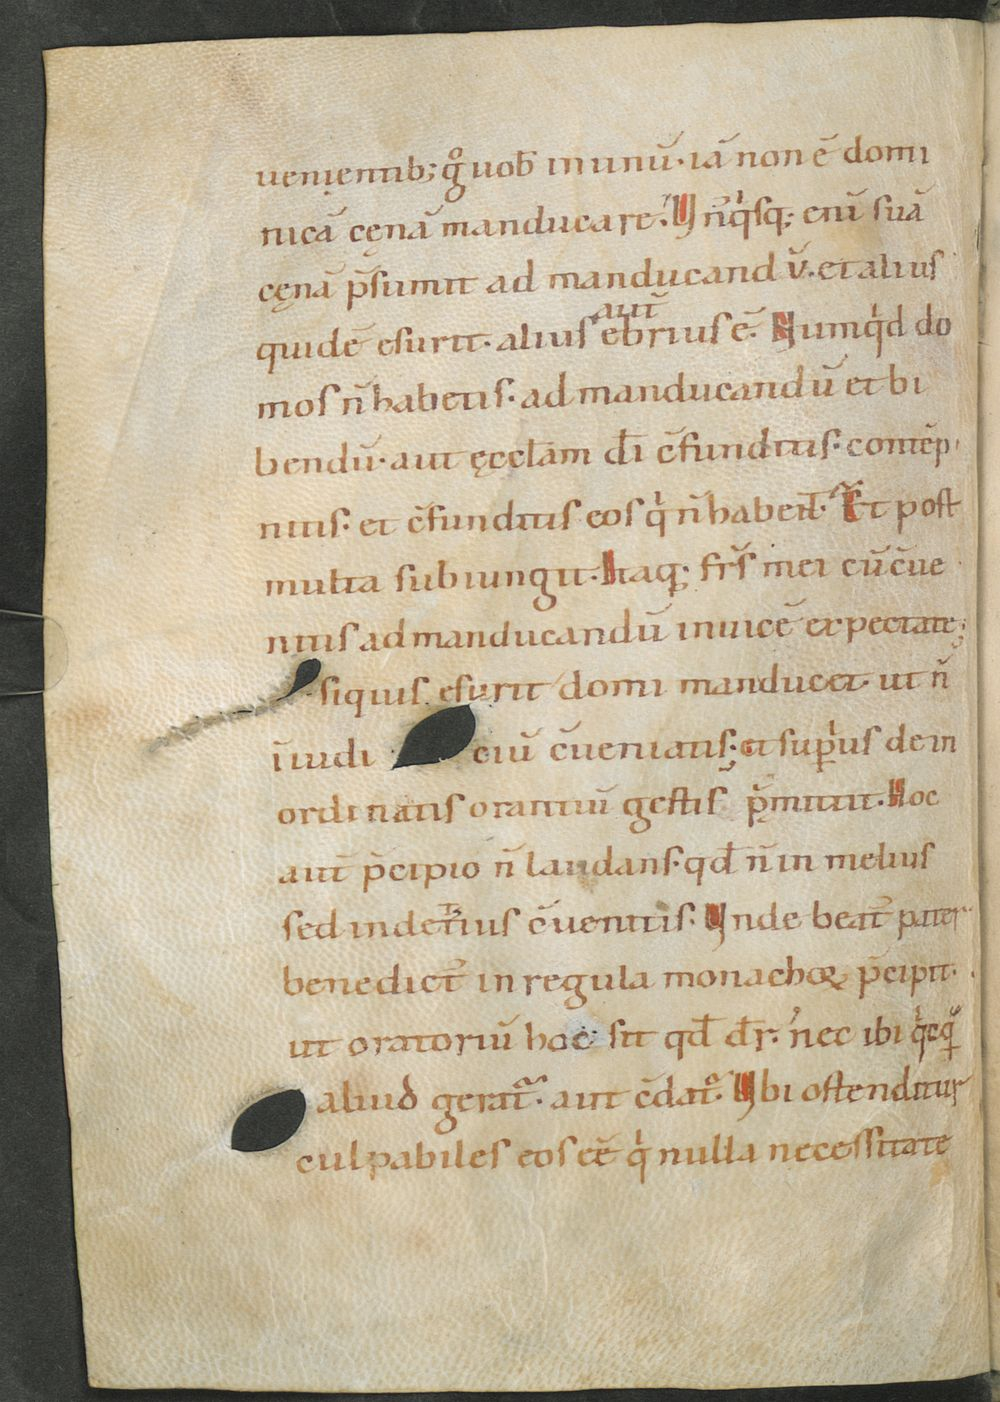 uenientib; gͦ uob̄ in unū· iā non ē domi
nicā cęnā manducare. Vn̄qͥsq; enī suā
cęnā p̄sumit ad manducandū. et alius
quidē esurit· alius aut̄ ebrius ē. Numqͥd do
mos n̄ habetis· ad manducandū et bi
bendū· aut ęcclām dī c̄funditis· contēp
nitis· et c̄funditis eos qͥ n̄ habent̄. Et post
multa subiungit. Itaq; frs̄ mei cū c̄ue
nitis ad manducandū inuicē expectate;
siquis esurit domi manducet· ut n̄
ī iudi ciū c̄ueniatis; et supͥus de in
ordinatis orantiū gestis p̄mittit. Hoc
aut̄ p̄cipio n̄ laudans· qd̄ n̄ in melius
sed in deteͥrius c̄uenitis. Vnde beat᷒ pater
benedict᷒ in regula monachoꝝ p̄cipit·
ut oratoriū hoc sit qd̄ dr̄· nec ibi qͥcqͣ̄
aliud gerat᷑· aut c̄dat᷑. Vbi ostenditur
culpabiles eos eē qͥ nulla necessitate